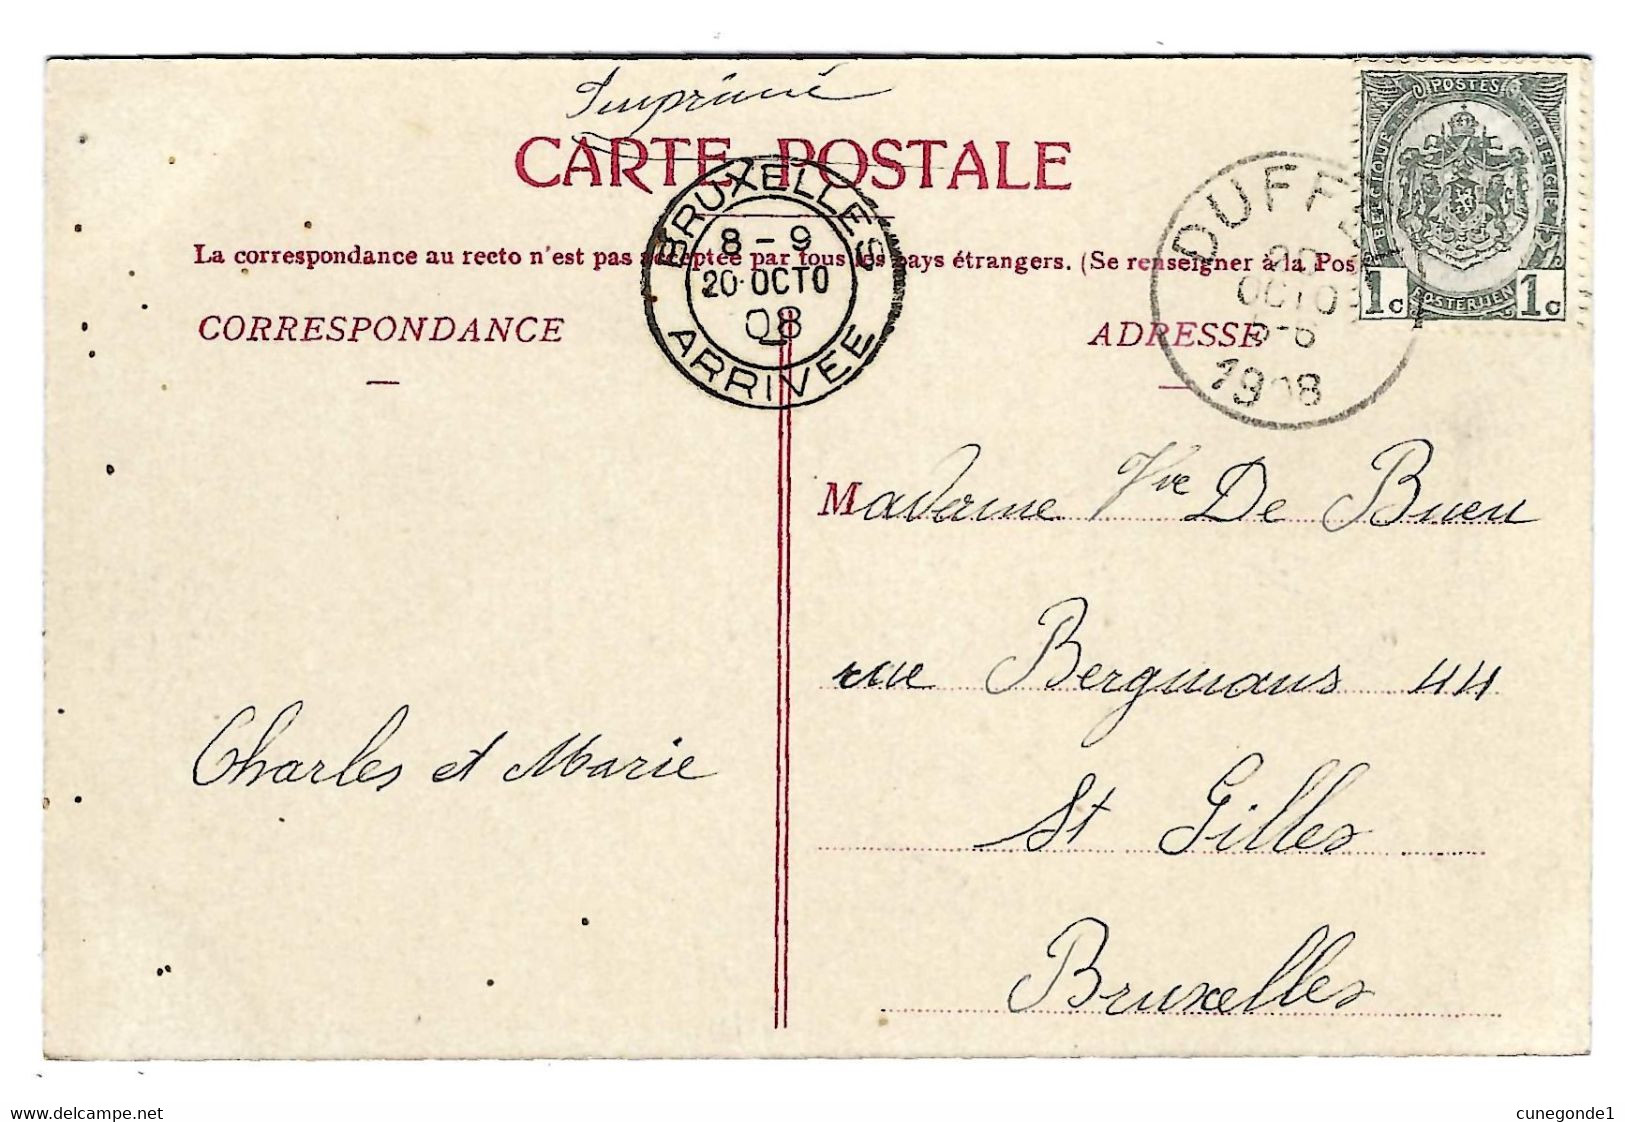 Imprimé
CARTE POSTALE
La correspondance au recto n'est pas acceptée par tous les pays étrangers. (Se renseigner à la Pos
CORRESPONDANCE
ADRESSE
BRUXELLES
8-9
20 OCTO
08
ARRIVEE
DUFFEL
20
OCTO
5-6
1908
POSTES
BELGIQUE
BELGIE
POSTERIJEN
1c
1c
Madame Vve De Bueu
rue Bergmans 44
St Gilles
Bruxelles
Charles et Marie
www.delcampe.net
cunegonde1